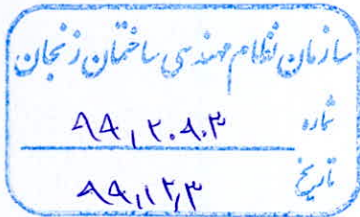 سازمان نظام مهندسی ساختمان زنجان
شماره ۹۹,۲۰۹۰۳
تاریخ ۹۹,۱۲,۳